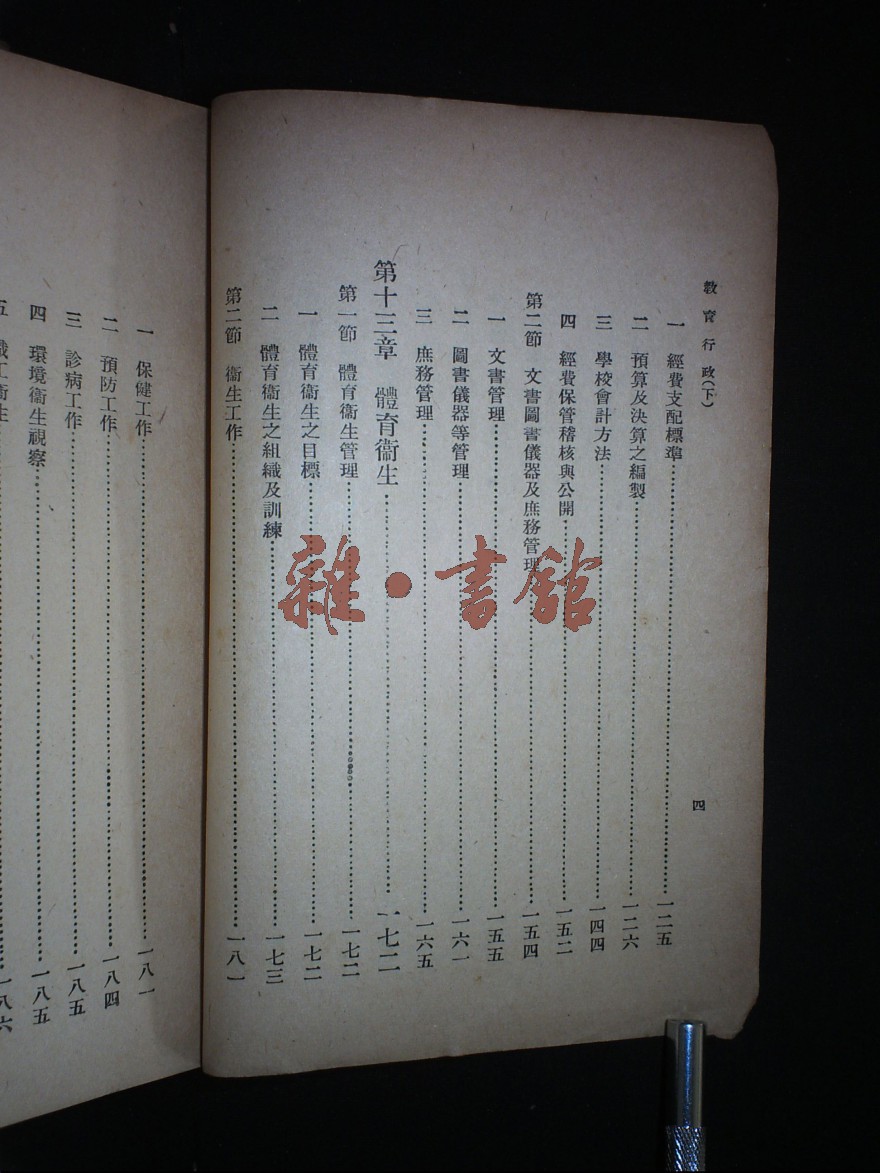 教育行政(下)
四
一 經費支配標準 一二五
二 預算及決算之編製 一二六
三 學校會計方法 一四四
四 經費保管稽核與公開 一五二
第二節 文書圖書儀器及庶務管理 一五四
一 文書管理 一五五
二 圖書儀器等管理 一六一
三 庶務管理 一六五
第十三章 體育衞生 一七二
第一節 體育衞生管理 一七二
一 體育衞生之目標 一七二
二 體育衞生之組織及訓練 一七三
第二節 衞生工作 一八一
一 保健工作 一八一
二 預防工作 一八四
三 診病工作 一八五
四 環境衞生視察 一八五
五 職工衞生 一八六
雜·書館